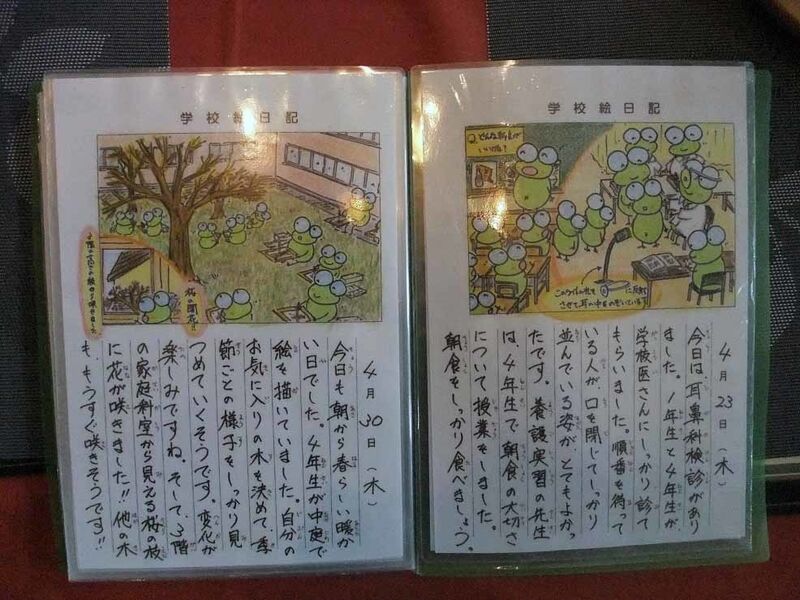 学校絵日記
Q.どんな朝食が
させて、耳の中などを見ている
4月23日(木)
今日は、耳鼻科検診があり
ました。1年生と4年生が、
学校医さんにしっかり診て
もらいました。順番を待って
いる人が口を閉じてしっかり
並んでいる姿がとてもよかっ
たです。養護実習の先生
は、4年生で朝食の大切さ
について授業をしました。
朝食をしっかり食べましょう。
学校絵日記
桜の開花!!
4月30日(木)
今日も朝から春らしい暖か
い日でした。4年生が中庭で
絵を描いていました。自分の
お気に入りの木を決めて、季
節ごとの様子をしっかり見
つめていくそうです。変化が
楽しみですね。そして、3階
の家庭科室から見える桜の枝
に花が咲きました!!他の木
も、もうすぐ咲きそうです!!